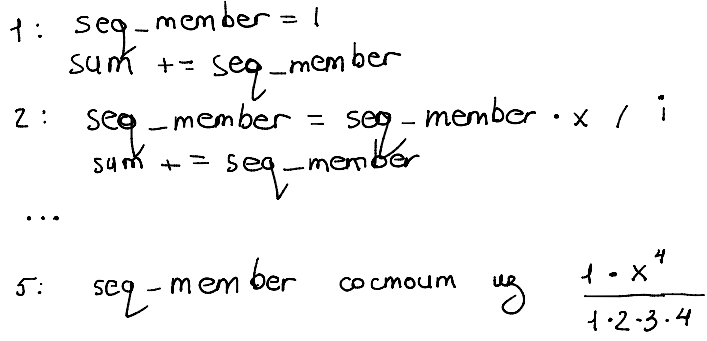 1: seq_member = 1
sum += seq_member
2: seq_member = seq_member · x / i
sum += seq_member
...
5: seq_member состоит из 1 · x⁴ / 1·2·3·4